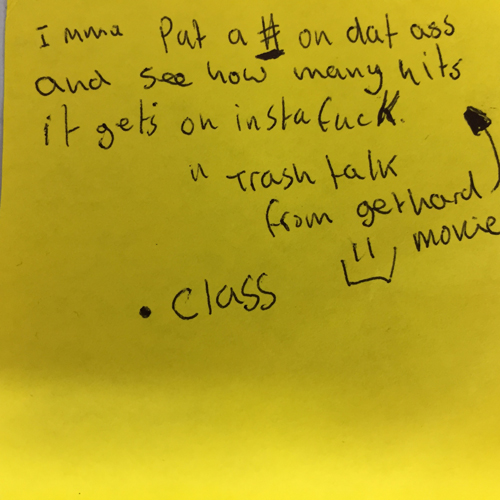 Imma Put a # on dat ass
and see how many hits
it gets on instafuck.
" Trash talk
from gethard
" movie
• class